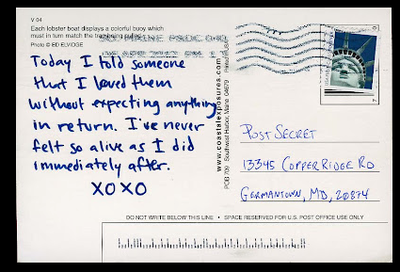 V 04
Each lobster boat displays a colorful buoy which
must in turn match the
Photo © ED ELVIDGE
Today I told someone
that I loved them
without expecting anything
in return. I've never
felt so alive as I did
immediately after.
XOXO
www.coastalexposures.com
POB 709 Southwest Harbor, Maine 04679
Printed in
POST SECRET
13345 COPPER RIDGE RD
GERMANTOWN, MD, 20874
DO NOT WRITE BELOW THIS LINE • SPACE RESERVED FOR U.S. POST OFFICE USE ONLY